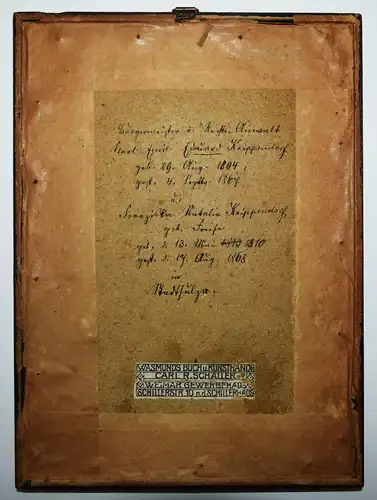 Bürgermeister u. Rechts-Anwalt
Karl Emil Eduard Krippendorf
geb. 29. Aug. 1804,
gest. 4. Septbr. 1867
u.
Franziska Natalie Krippendorf
geb. Freise
geb. d. 13. Mai 1810
gest. d. 19. Aug. 1868
in
Stadtsulza.
WASMUNDS BUCH u. KUNSTHANDL
CARL R. SCHALLER
WEIMAR GEWERBEHAUS
SCHILLERSTR. 10 n.d. SCHILLERHAUS